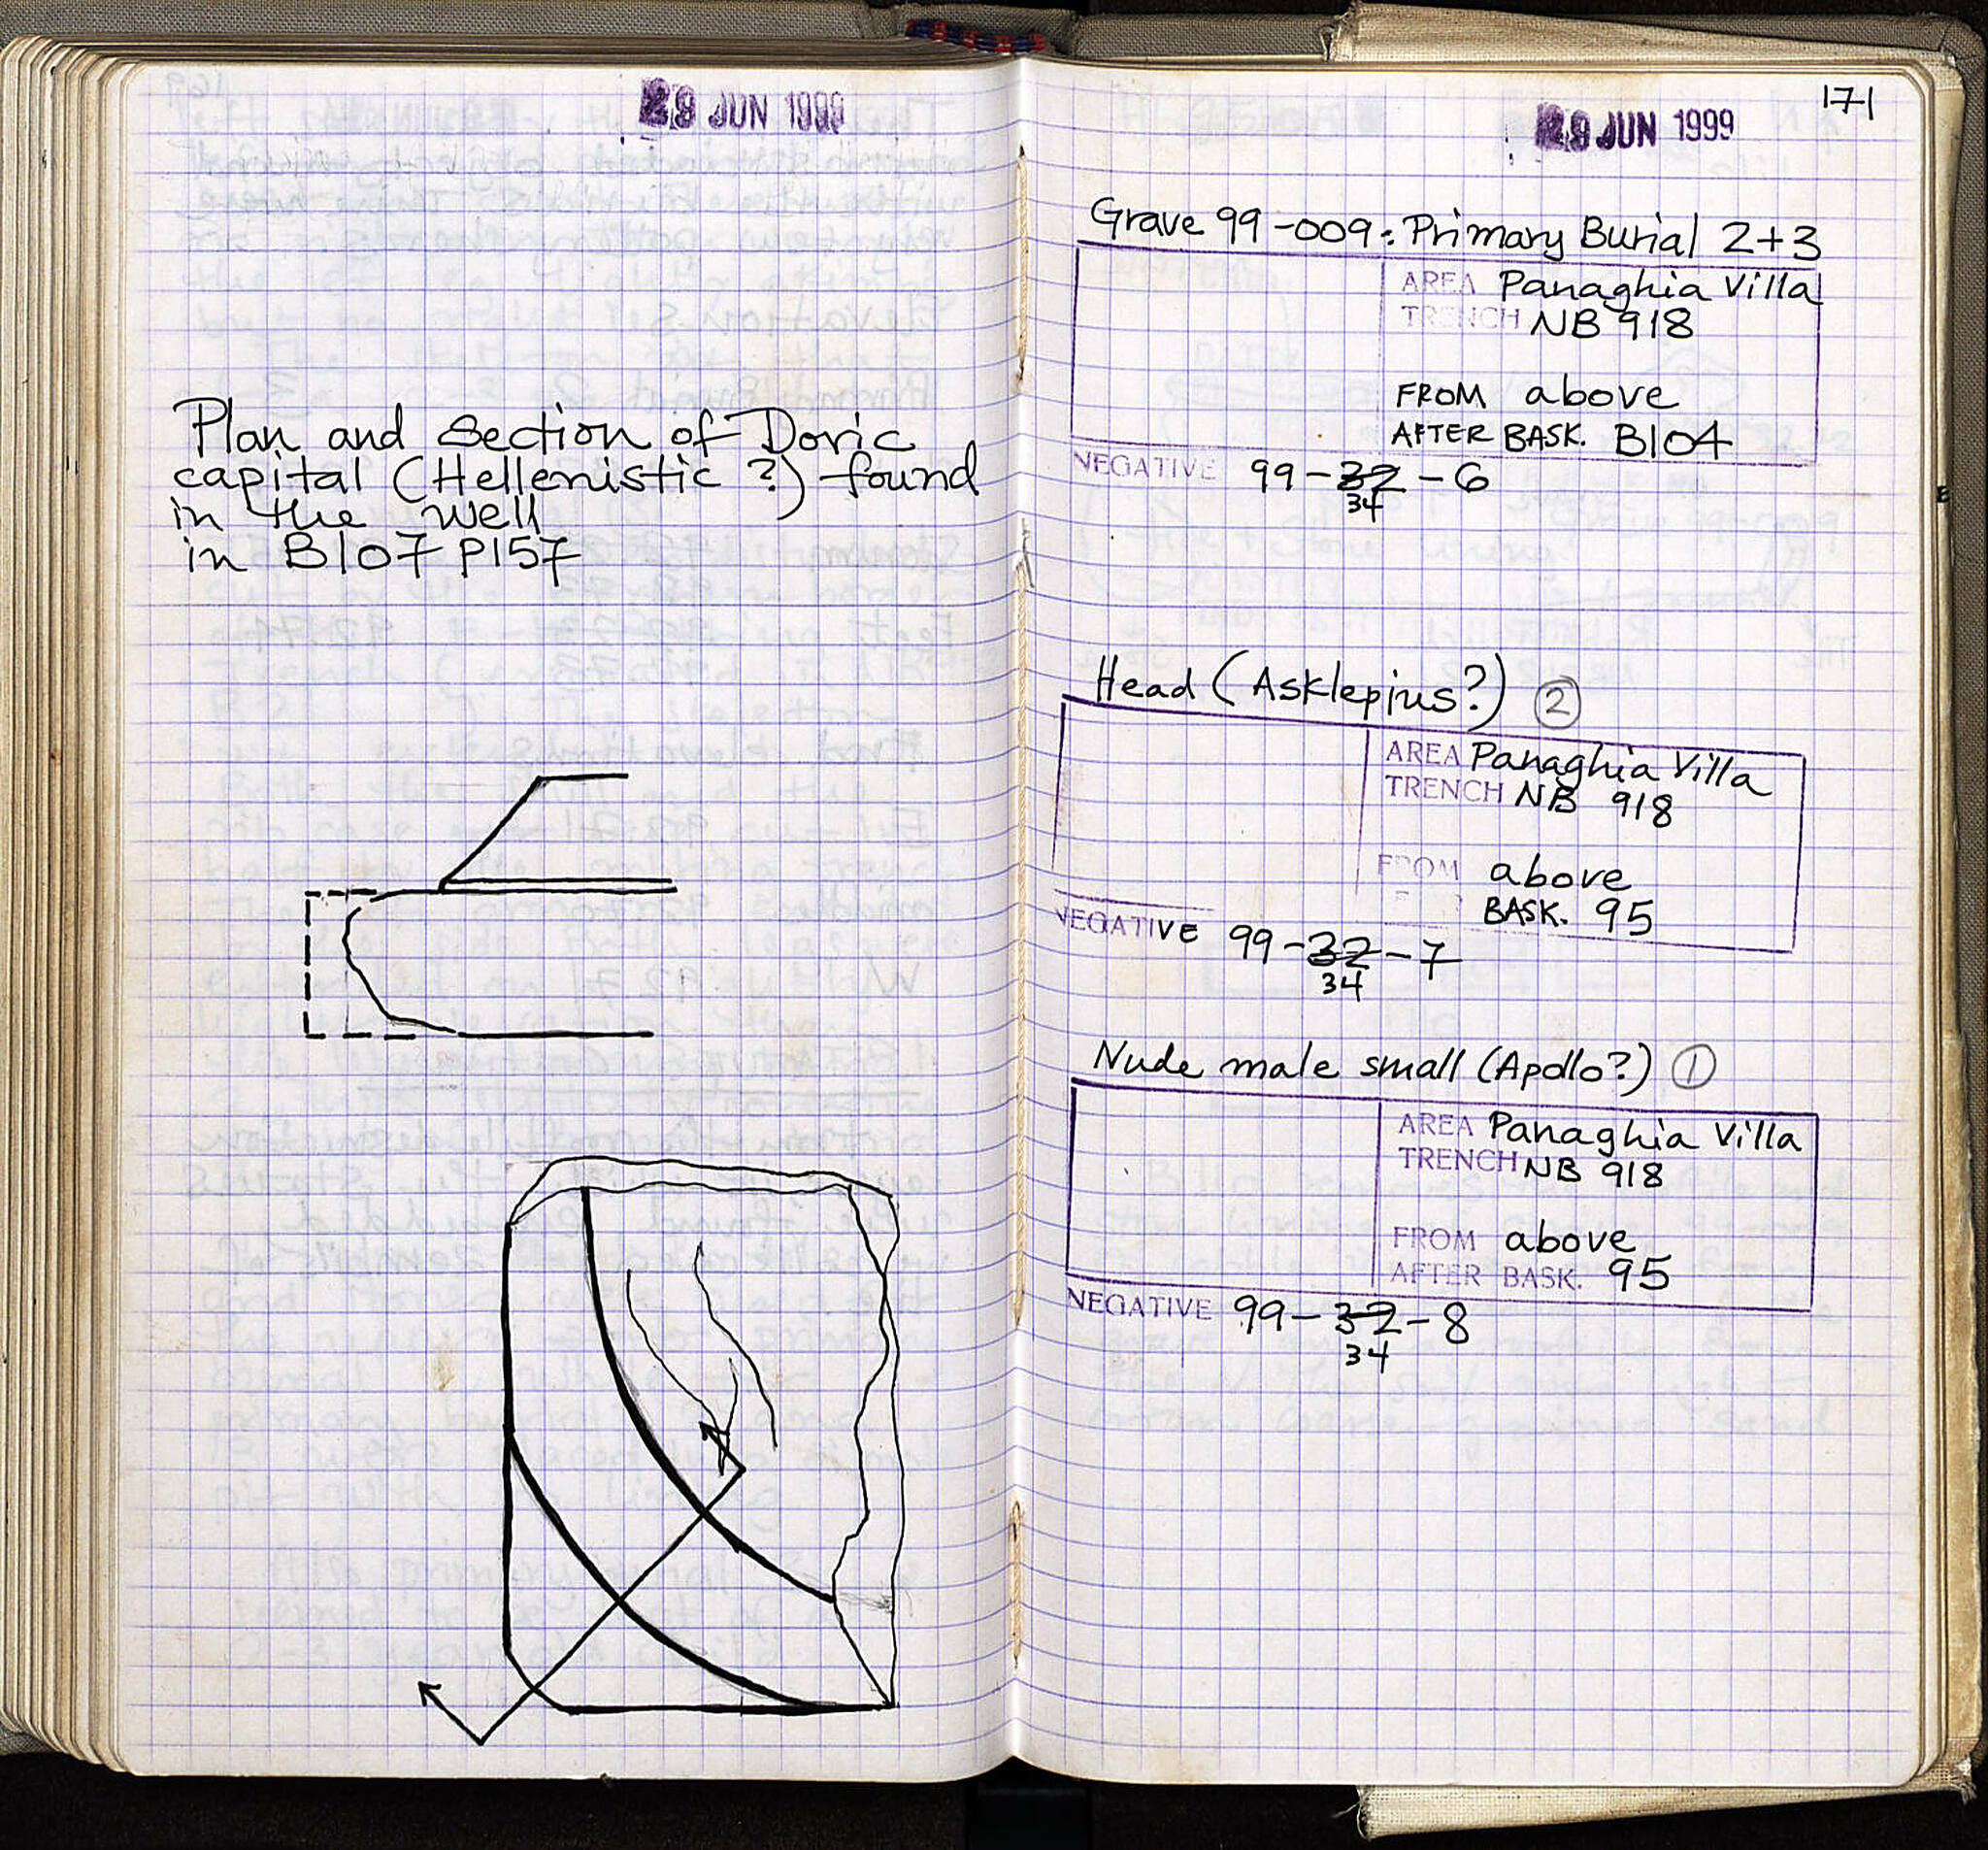 29 JUN 1999
Plan and section of Doric
capital (Hellenistic ?) found
in the well
in B107 P157
171
29 JUN 1999
Grave 99-009: Primary Burial 2+3
AREA Panaghia Villa
TRENCH NB 918
FROM above
AFTER BASK. B104
NEGATIVE 99-32-6
34
Head (Asklepius?) 2
AREA Panaghia Villa
TRENCH NB 918
FROM above
BASK. 95
NEGATIVE 99-32-7
34
Nude male small (Apollo?) 1
AREA Panaghia Villa
TRENCH NB 918
FROM above
AFTER BASK. 95
NEGATIVE 99-32-8
34